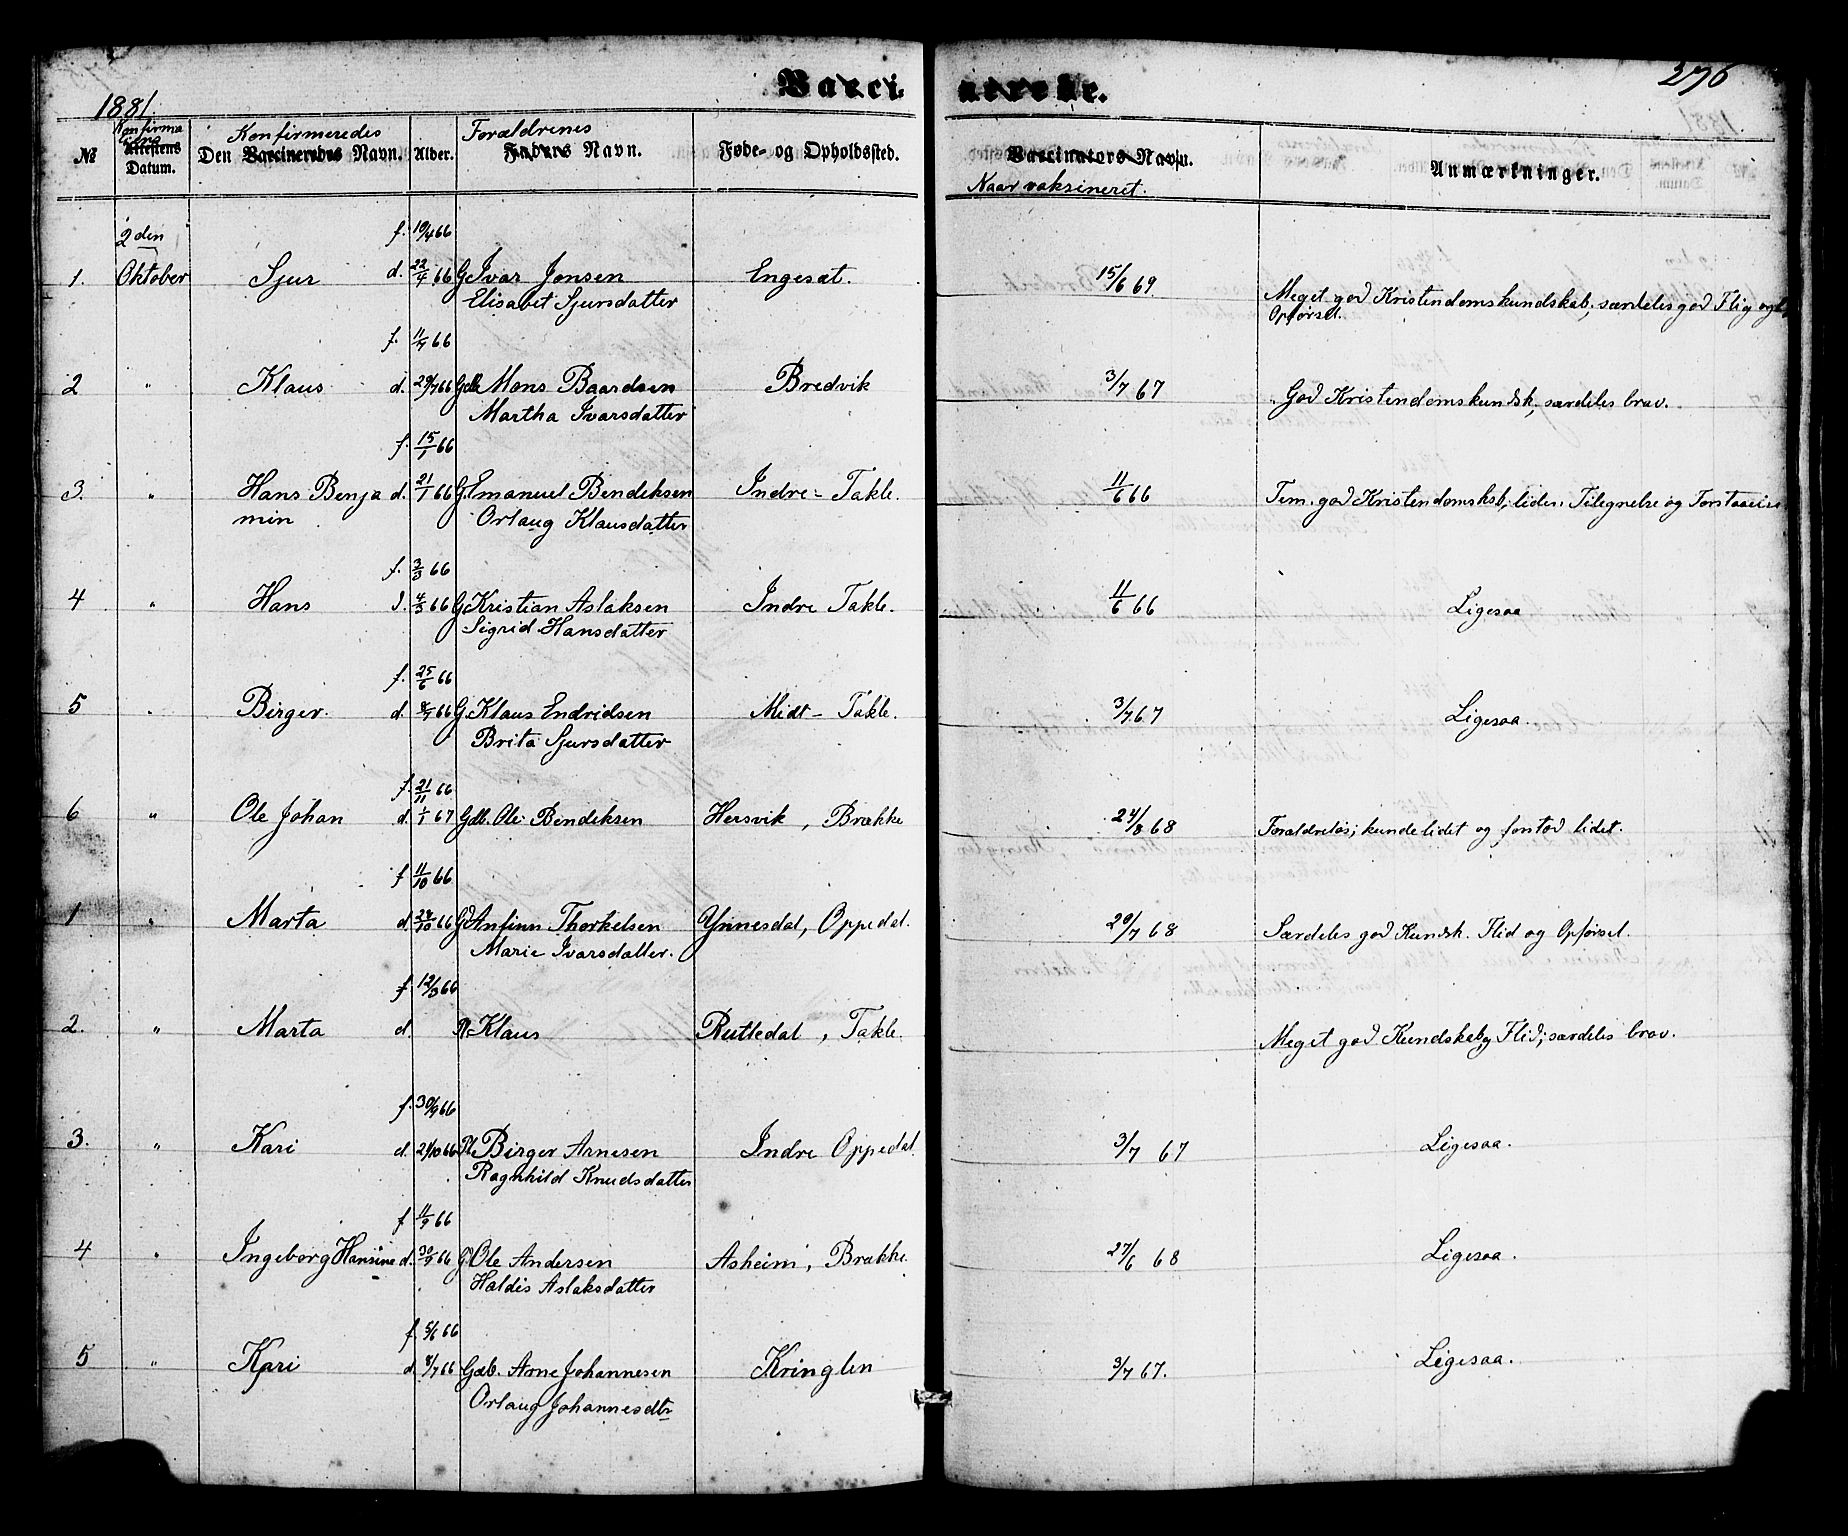 Vacci- nerede.
276
1881
№ Konfirmations Attestens Datum. Den Konfirmeredes Vaccineredes Navn. Alder. Forældrenes Faders Navn. Føde- og Opholdssted. Vaccinators Navn. Naar vaksineret. Anmærkninger.
2den f. 19/4 66
1. Oktober Sjur d. 22/4 66 G Ivar Jonsen Engesæt. 15/6 69. Meget god Kristendomskundskab, særdeles god Flig og
Elisabet Sjursdatter Opførsel.
f. 11/7 66
2 " Klaus d. 29/7 66 Gdb Mons Baardsen Bredvik 3/7 67 God Kristendomskundsk, særdeles brav.
Martha Ivarsdatter
f. 15/1 66
3. " Hans Benja d. 21/1 66 G. Emanuel Bendiksen Indre - Takle. 11/6 66 Tem. god Kristendomskab, liden Tilegnelse og Forstaaelse
min Orlaug Klausdatter
f. 3/3 66
4 " Hans d. 4/3 66 G Kristian Aslaksen Indre Takle. 11/6 66 Ligesaa
Sigrid Hansdatter
f. 25/6 66
5 " Birger. d. 8/7 66 G. Klaus Endridsen Midt - Takle. 3/7 67 Ligesaa.
Brita Sjursdatter
f. 21/11 66
6 " Ole Johan d. 1/1 67 Gdb. Ole Bendiksen Hersvik, Brække 24/8 68 Forældreløs; kunde lidet og forstod lidet.
f 11/10 66
1 " Marta d. 24/10 66 Gd Anfinn Thorkelsen Ynnesdal, Oppedal. 29/7 68 Særdeles god Kundsk. Flid og Opførsel.
Marie Ivarsdatter.
f. 12/3 66
2. " Marta d. Klaus Rutledal, Takle. Meget god Kundskab, Flid; særdeles brav.
f. 30/9 66
3. " Kari d. 21/10 66 Pl Birger Arnesen Indre Oppedal. 3/7 67 Ligesaa.
Ragnhild Knudsdatter
f 11/9 66
4 " Ingeborg Hansine d. 30/9 66 G. Ole Andersen Asheim, Brække. 27/6 68 Ligesaa.
Haldis Aslaksdatter
f. 5/6 66
5 " Kari d. 8/7 66 Gdb. Arne Johannesen Kringlen 3/7 67. Ligesaa.
Orlaug Johannesdtr